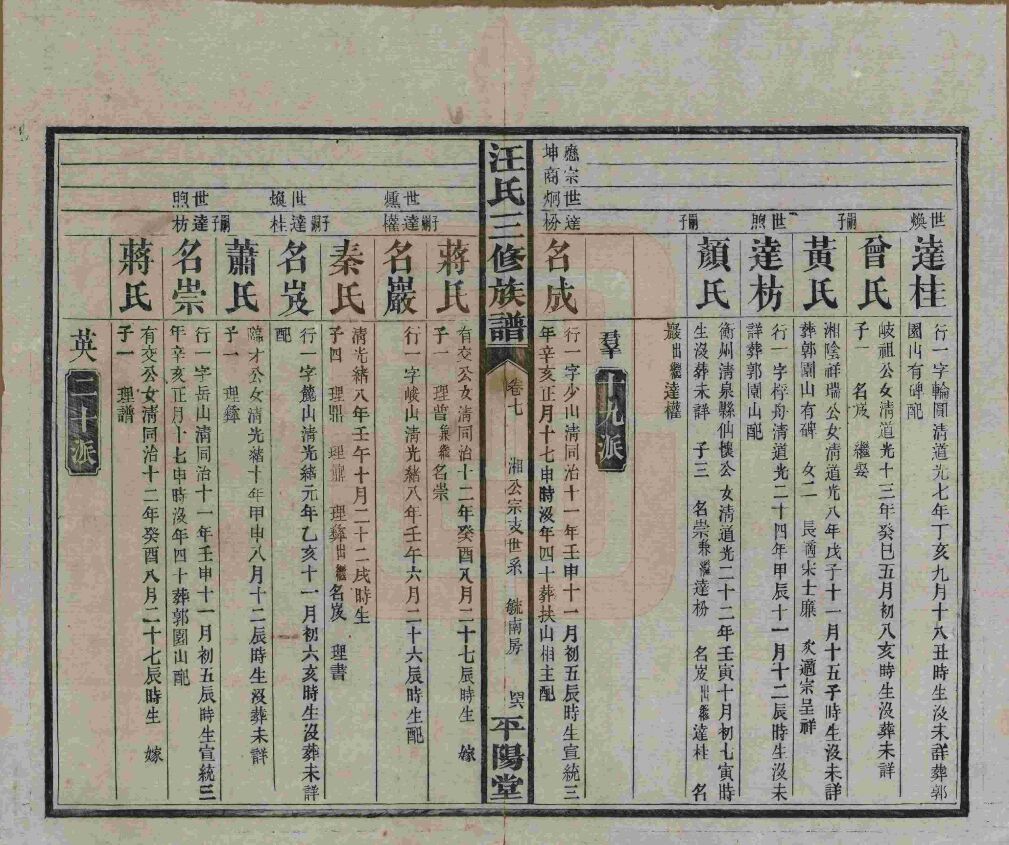 世
煥
達桂
行一字輪圍清道光七年丁亥九月十八丑時生沒未詳葬郭
園山有碑配
嗣子
曾氏
岐祖公女清道光十三年癸巳五月初八亥時生沒葬未詳
子一 名岌 繼娶
黃氏
湘陰祥瑞公女清道光八年戊子十一月十五子時生沒未詳
葬郭園山有碑 女二 長適宋士廉 次適宗呈祥
世煦
達枋
行一字梓舟清道光二十四年甲辰十一月十二辰時生沒未
詳葬郭園山配
嗣子
顏氏
衡州清泉縣仙懷公女清道光二十二年壬寅十月初七寅時
生沒葬未詳 子三 名崇兼繼達枌 名岌出繼達桂 名
巖出繼達權
羣 十九派
應宗世達
坤商炯枌
名成
行一字少山清同治十一年壬申十一月初五辰時生宣統三
年辛亥正月十七申時沒年四十葬扶山相主配
汪氏三修族譜 卷七 湘公宗支世系 毓南房 平陽堂
蔣氏
有交公女清同治十二年癸酉八月二十七辰時生 嫁
子一 理譜兼繼名崇
世達嗣子
爋權
名巖
行一字峻山清光緒八年壬午六月二十六辰時生配
秦氏
清光緒八年壬午十月二十二戌時生
子四 理鼎 理鼒 理彝出繼名岌 理書
世達嗣子
煥桂
名岌
行一字巍山清光緒元年乙亥十一月初六亥時生沒葬未詳
配
蕭氏
臨才公女清光緒十年甲申八月十二辰時生沒葬未詳
子一 理彝
世達嗣子
煦枋
名崇
行一字岳山清同治十一年壬申十一月初五辰時生宣統三
年辛亥正月十七申時沒年四十葬郭園山配
蔣氏
有交公女清同治十二年癸酉八月二十七辰時生 嫁
子一 理譜
英 二十派